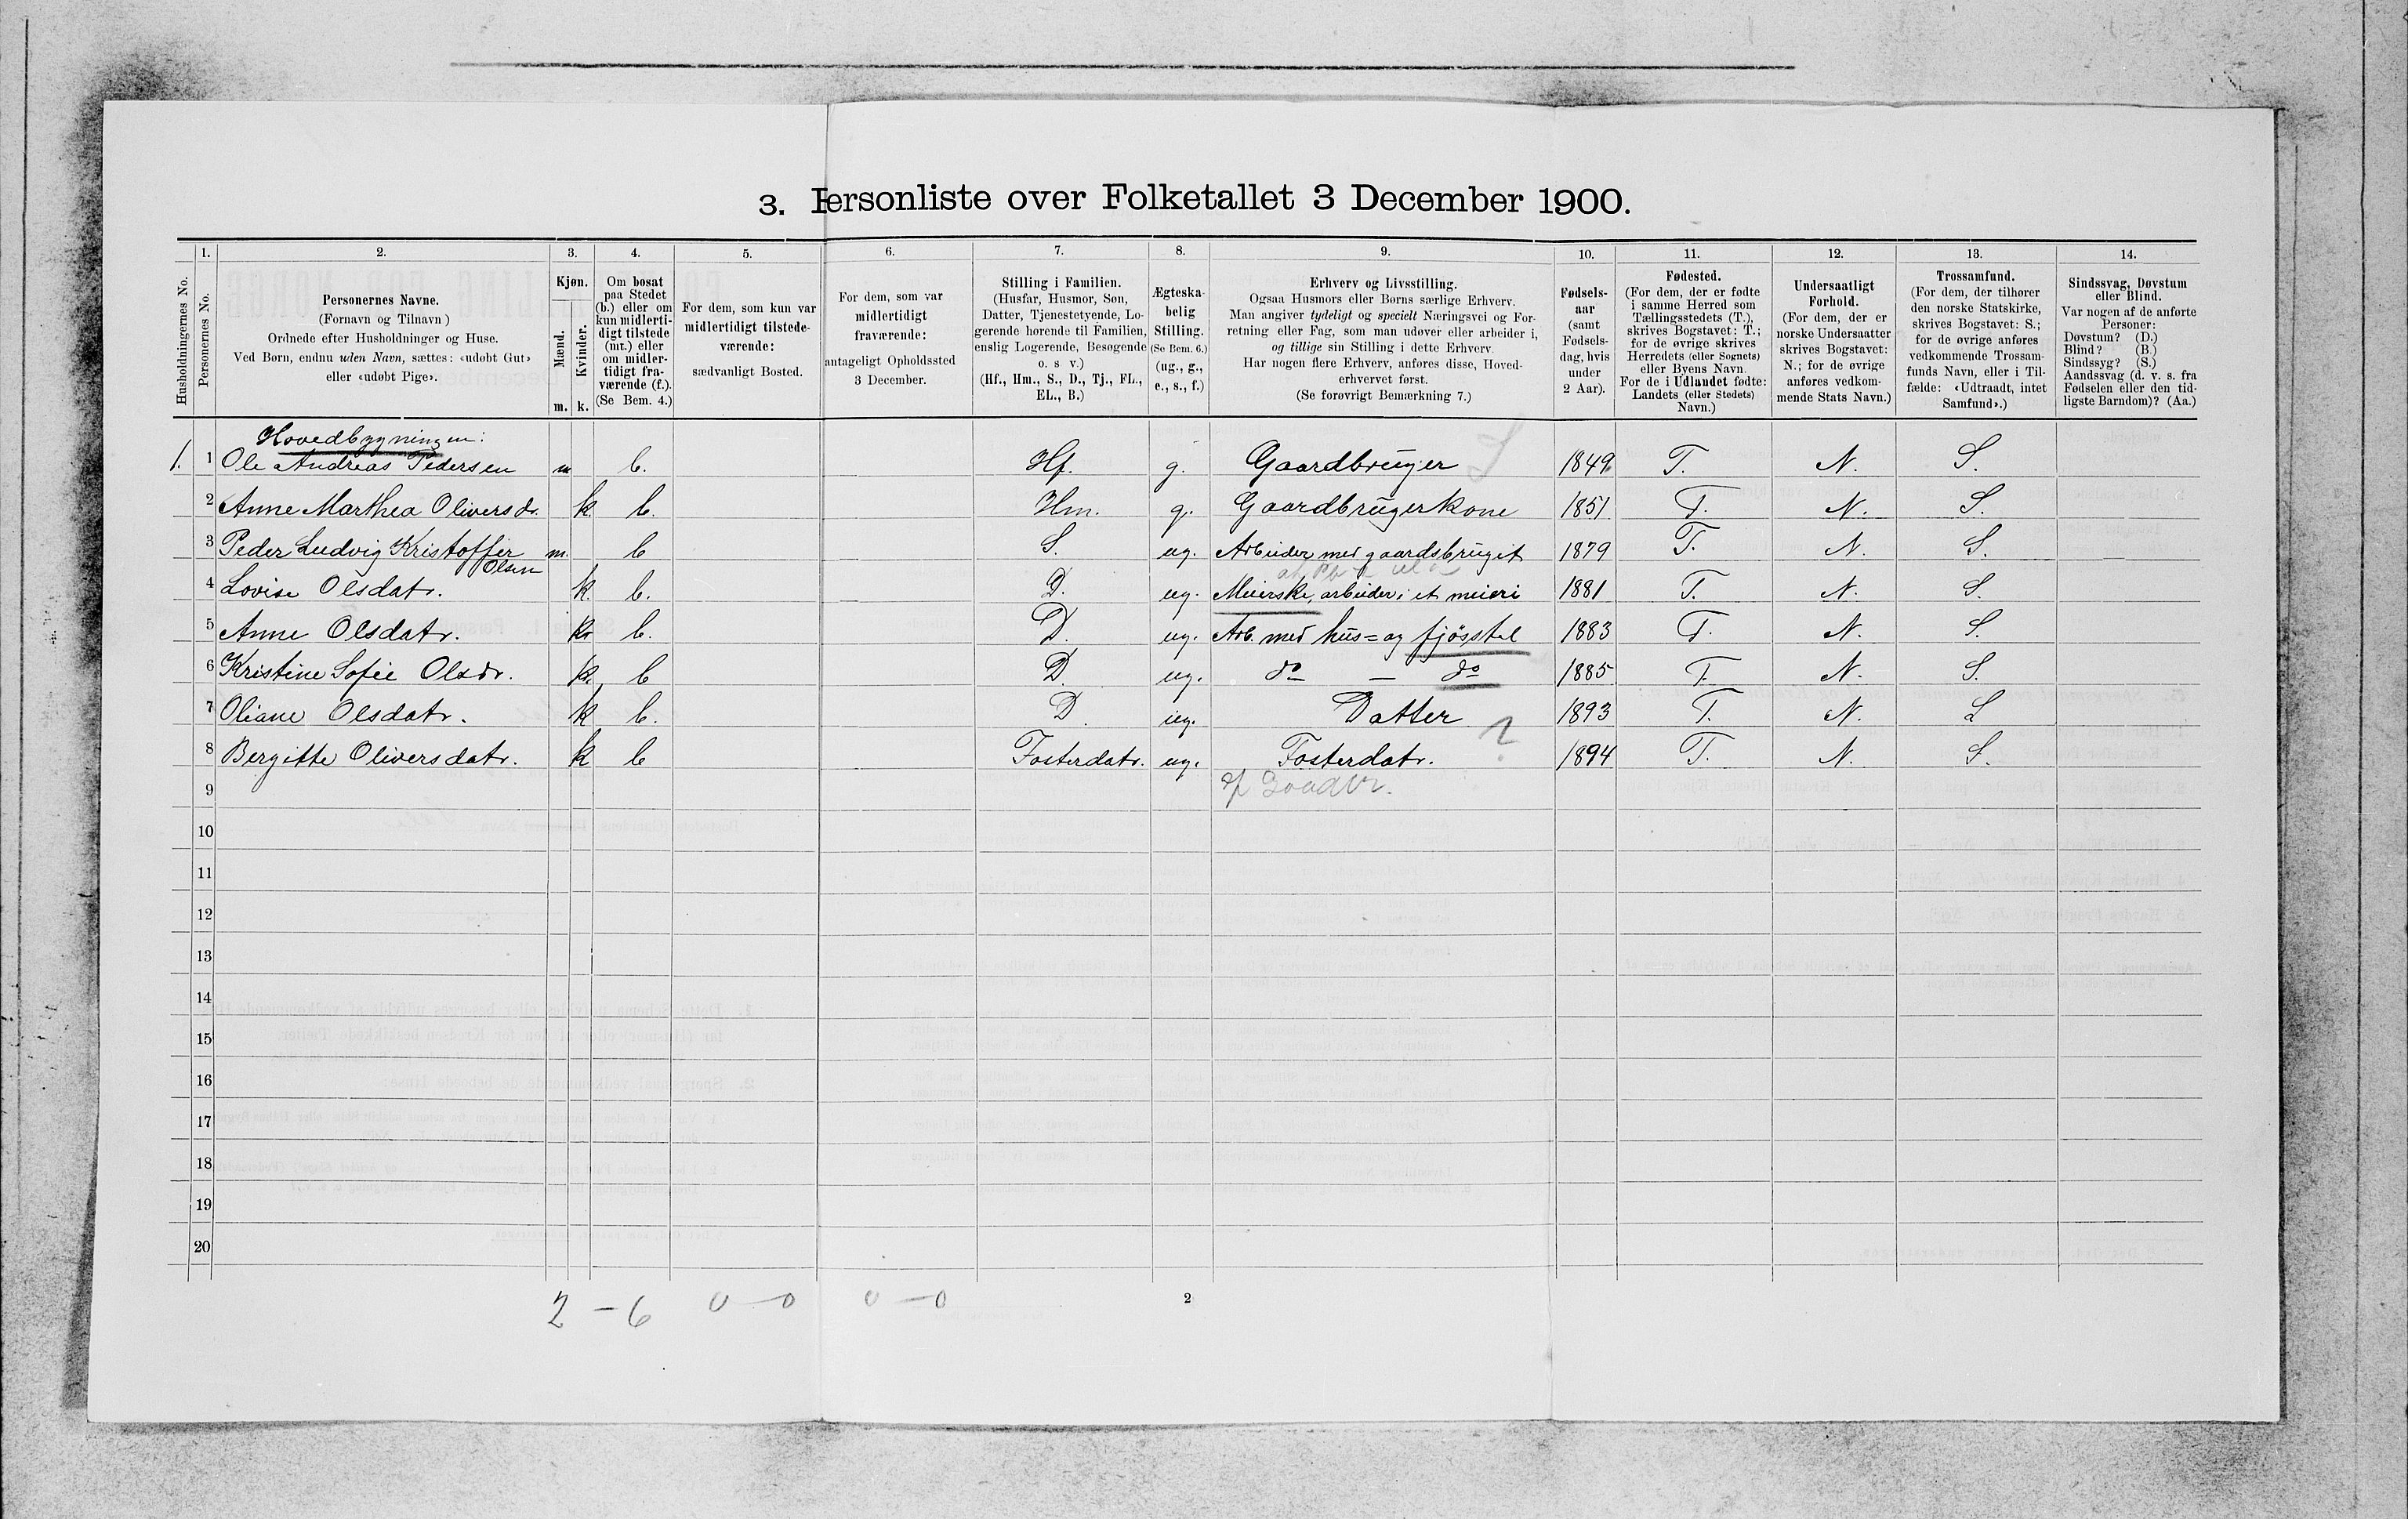 3. Personliste over Folketallet 3 December 1900.
1. 2. 3. 4. 5. 6. 7. 8. 9. 10. 11. 12. 13. 14.
Husholdningernes No.
Personernes No.
Personernes Navne.
(Fornavn og Tilnavn)
Ordnede efter Husholdninger og Huse.
Ved Børn, endnu uden Navn, sættes: «udøbt Gut»
eller «udøbt Pige».
Kjøn.
Mænd.
Kvinder.
m. k.
Om bosat
paa Stedet
(b.) eller om
kun midlerti-
digt tilstede
(mt.) eller
om midler-
tidigt fra-
værende (f.).
(Se Bem. 4.)
For dem, som kun var
midlertidigt tilstede-
værende:
sædvanligt Bosted.
For dem, som var
midlertidigt
fraværende:
antageligt Opholdssted
3 December.
Stilling i Familien.
(Husfar, Husmor, Søn,
Datter, Tjenestetyende, Lo-
gerende hørende til Familien,
enslig Logerende, Besøgende
o. s v.)
(Hf., Hm., S., D., Tj., FL.,
EL., B.)
Ægteska-
belig
Stilling.
(Se Bem. 6.)
(ug., g.,
e., s., f.)
Erhverv og Livsstilling.
Ogsaa Husmors eller Børns særlige Erhverv.
Man angiver tydeligt og specielt Næringsvei og For-
retning eller Fag, som man udøver eller arbeider i,
og tillige sin Stilling i dette Erhverv.
Har nogen flere Erhverv, anføres disse, Hoved-
erhvervet først.
(Se forøvrigt Bemærkning 7.)
Fødsels-
aar
(samt
Fødsels-
dag, hvis
under
2 Aar).
Fødested.
(For dem, der er fødte
i samme Herred som
Tællingsstedets (T.),
skrives Bogstavet: T.;
for de øvrige skrives
Herredets (eller Sognets)
eller Byens Navn.
For de i Udlandet fødte:
Landets (eller Stedets)
Navn.)
Undersaatligt
Forhold.
(For dem, der er
norske Undersaatter
skrives Bogstavet:
N.; for de øvrige
anføres vedkom-
mende Stats Navn.)
Trossamfund.
(For dem, der tilhører
den norske Statskirke,
skrives Bogstavet: S.;
for de øvrige anføres
vedkommende Trossam-
funds Navn, eller i Til-
fælde: «Udtraadt, intet
Samfund».)
Sindssvag, Døvstum
eller Blind.
Var nogen af de anførte
Personer:
Døvstum? (D.)
Blind? (B.)
Sindssyg? (S.)
Aandssvag (d. v. s. fra
Fødselen eller den tid-
ligste Barndom)? (Aa.)
Hovedbygningen:
1. 1 Ole Andreas Pedersen m b. Hf. g. Gaardbruger 1849 T. N. S.
2 Anne Marthea Oliversdr. k. b. Hm. g. Gaardbrugerkone 1851 T. N. S.
3 Peder Ludvig Kristoffer m. b S. ug. Arbeider med gaardsbruget 1879 T. N. S.
Olsen
4 Lovise Olsdatr. k. b. D. ug. Meierske, arbeider i et meieri 1881 T. N. S.
5 Anne Olsdatr. k b. D. ug. Arb. med hus= og fjösstel 1883 T. N. S.
6 Kristine Sofie Olsdr. k. b D. ug. do — do 1885 T. N. S.
7 Oliane Olsdatr. k b. D. ug. Datter 1893 T. N. S
8 Bergitte Oliversdatr. k b Fosterdatr. ug. Fosterdatr. ? 1894 T. N. S.
9
10
11
12
13
14
15
16
17
18
19
20
2 – 6 0 – 0 0 – 0 2